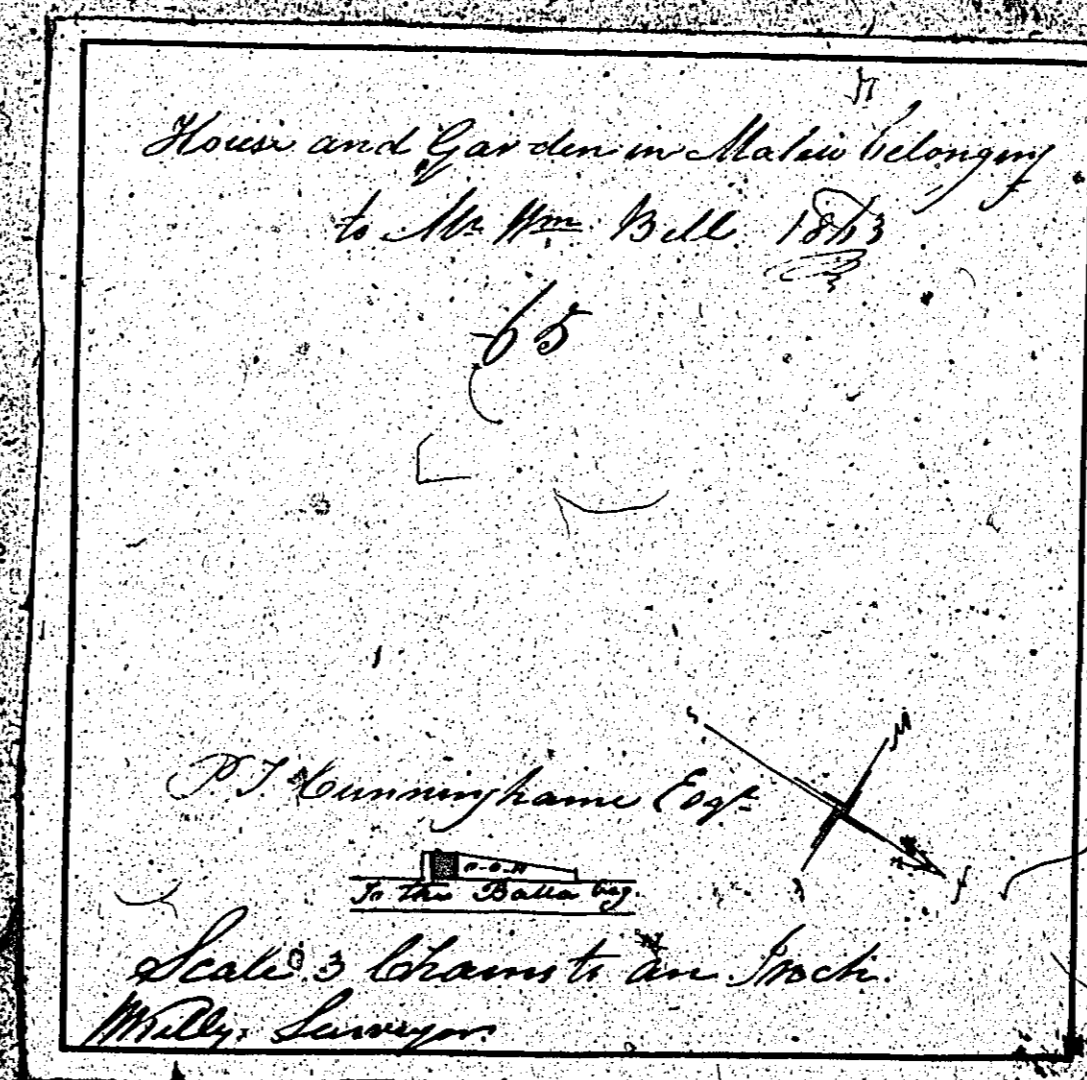 House and Garden in Malew belonging
to Mr Wm Bell 1863
65
P.T. Cunninghame Esqr
0-0-11
To the Balla beg.
Scale 3 Chains to an Inch.
W Kelly: Surveyor